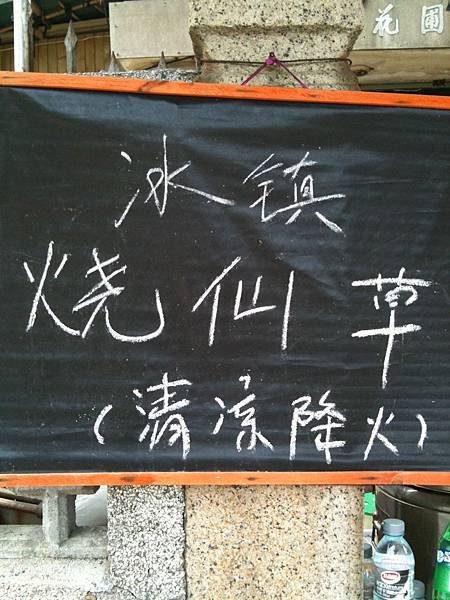 花圃
冰镇
烧仙草
(清凉降火)